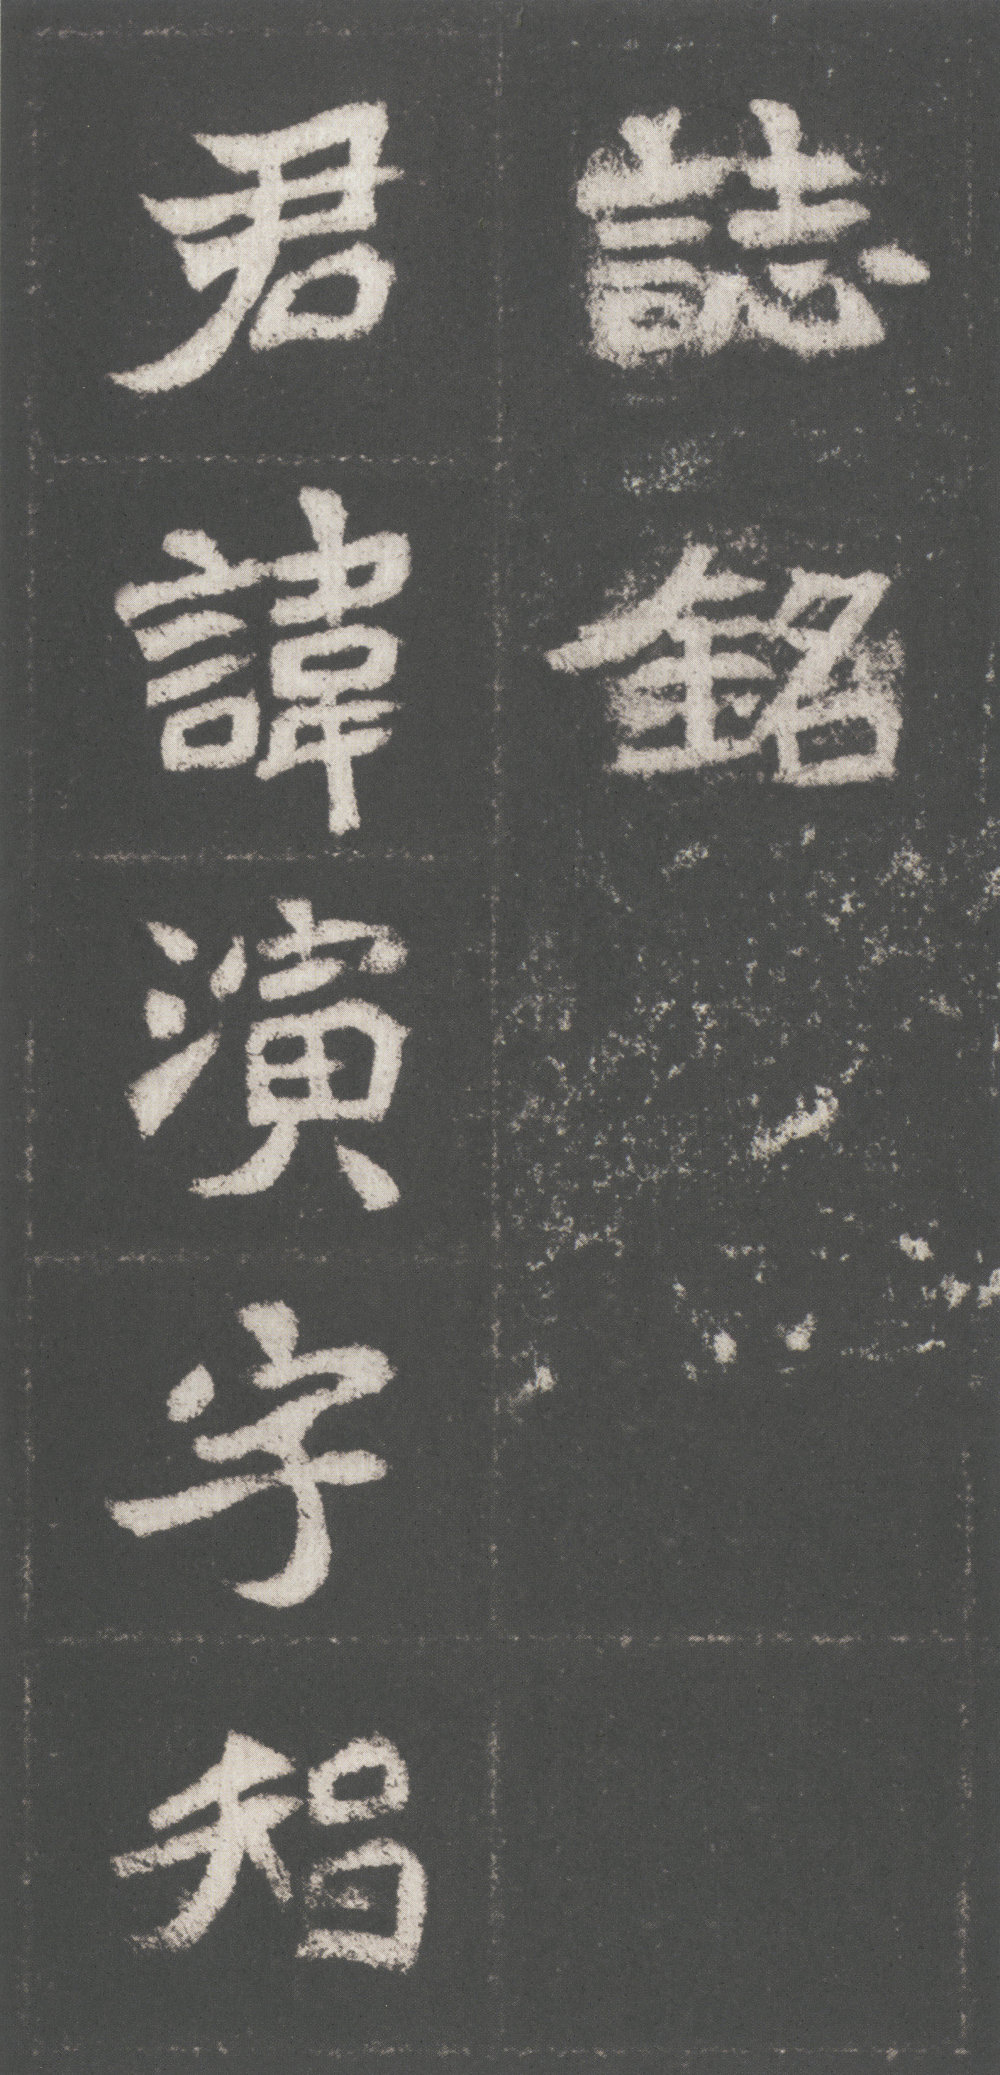 誌銘
君諱演字智